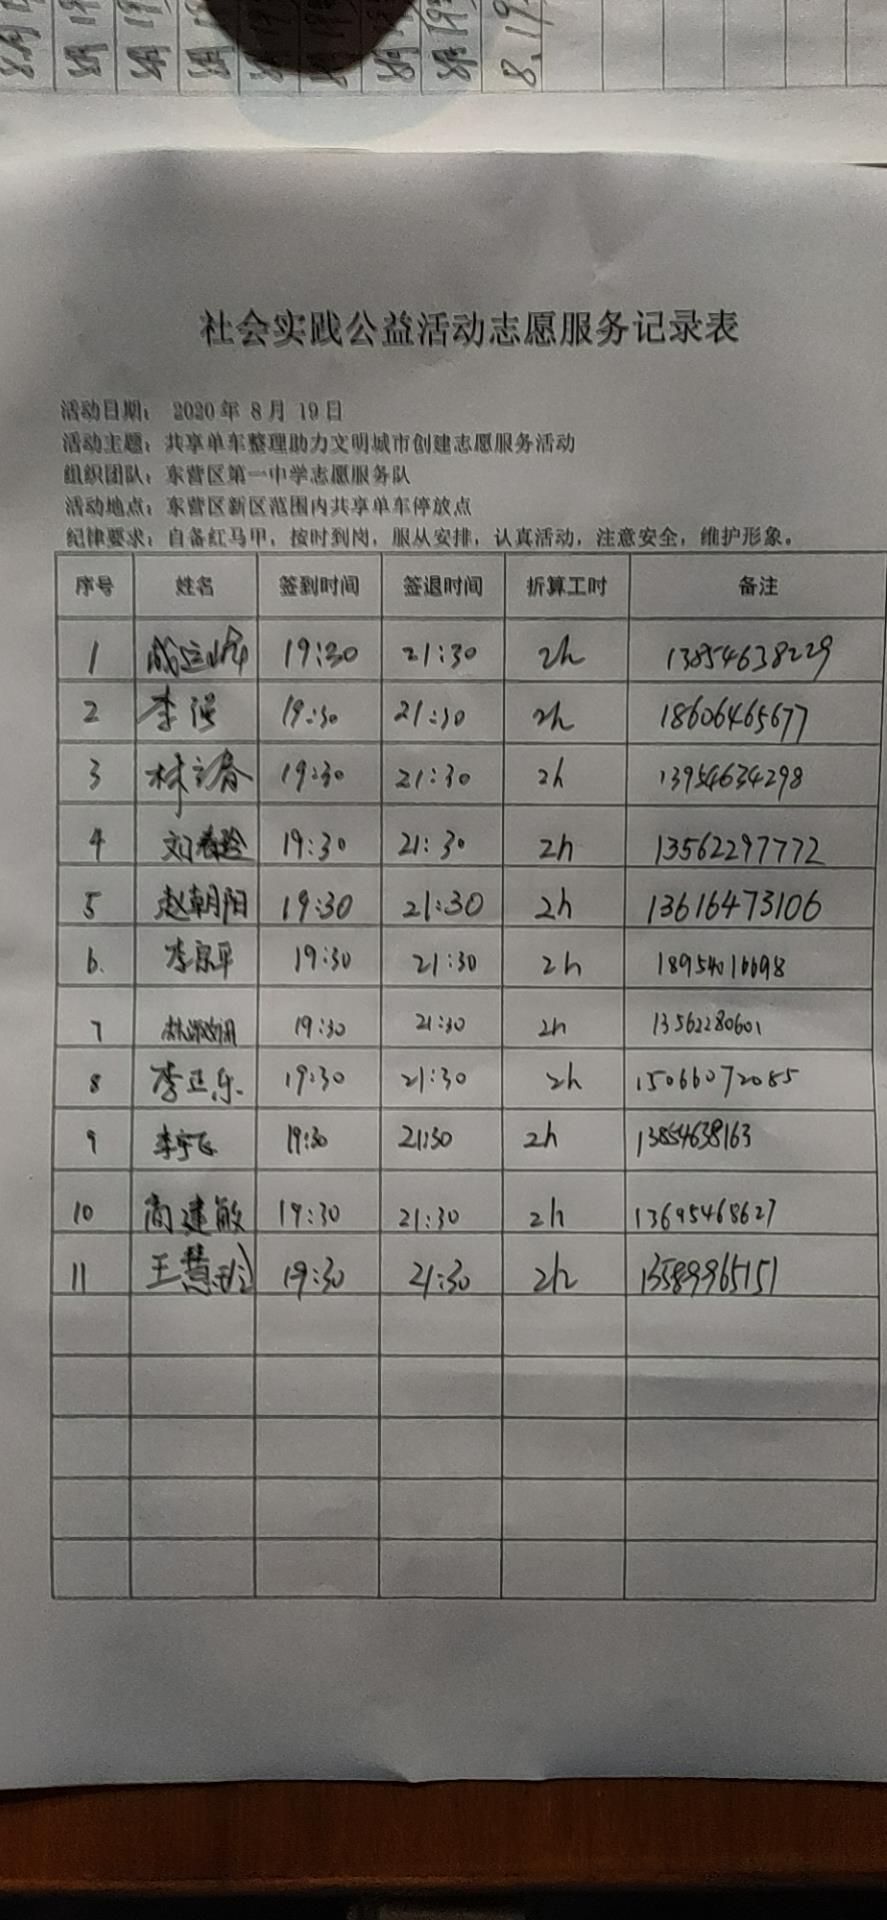 社会实践公益活动志愿服务记录表
活动日期： 2020 年 8 月 19 日
活动主题：共享单车整理助力文明城市创建志愿服务活动
组织团队：东营区第一中学志愿服务队
活动地点：东营区新区范围内共享单车停放点
纪律要求：自备红马甲，按时到岗，服从安排，认真活动，注意安全，维护形象。
序号 姓名 签到时间 签退时间 折算工时 备注
1 19:30 21:30 2h 13854638229
2 李强 19:30 21:30 2h 18606465677
3 林立春 19:30 21:30 2h 13954634298
4 19:30 21:30 2h 13562297772
5 赵朝阳 19:30 21:30 2h 13616473106
6. 李宗平 19:30 21:30 2h 18954016698
7 19:30 21:30 2h 13562280601
8 李正乐 19:30 21:30 2h 15066072085
9 李宇飞 19:30 21:30 2h 13854638163
10 尚建敏 19:30 21:30 2h 13695468627
11 王慧玲 19:30 21:30 2h 13589965151